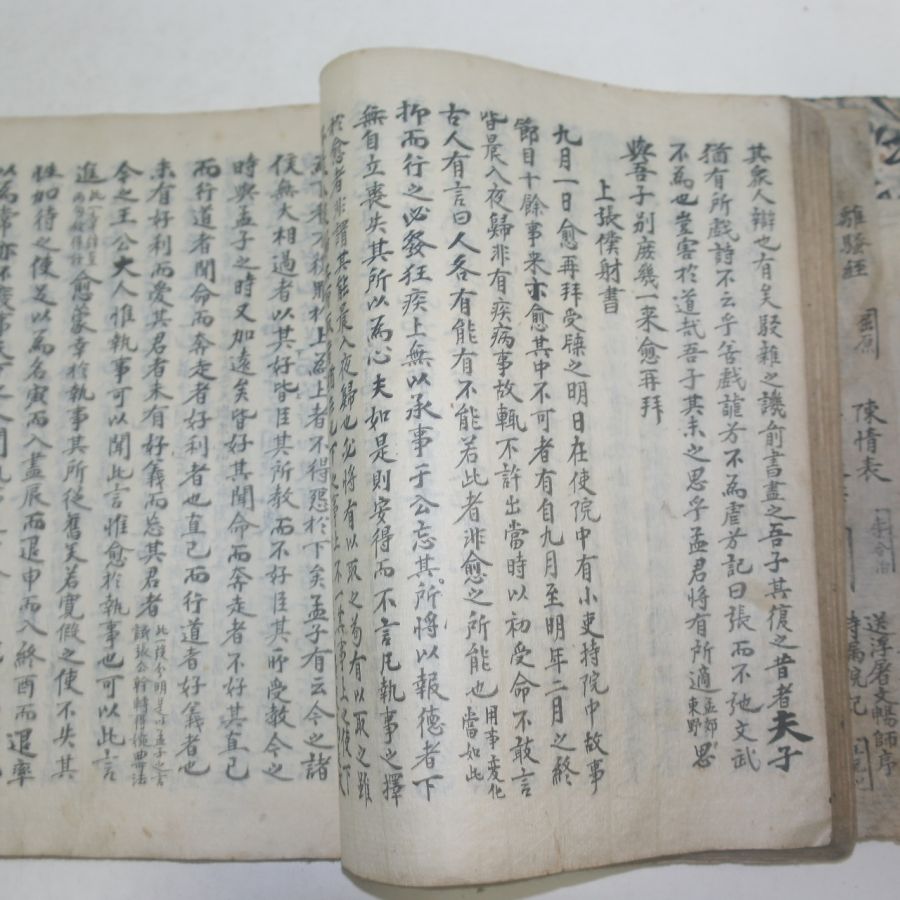 其衆人辯也有矣駁雜之譏前書盡之吾子其復之昔者夫子
猶有所戲詩不云乎善戲謔兮不爲虐兮記曰張而不弛文武
不爲也豈害於道哉吾子其未之思乎孟君將有所適孟郊東野思
與吾子別庶幾一来愈再拜
上張僕射書
九月一日愈再拜受牒之明日在使院中有小吏持院中故事
節目十餘事来亦愈其中不可者有自九月至明年二月之終
皆晨入夜歸非有疾病事故輒不許出當時以初受命不敢言
古人有言曰人各有能有不能若此者非愈之所能也用事變化當如此
抑而行之必發狂疾上無以承事于公忘其所將以報德者下
無自立喪失其所以爲心夫如是則安得而不言凡執事之擇
於愈者非謂其能晨入夜歸也必將有以取之苟有以取之雖
上者不得怨於下矣孟子有云今之諸
侯無大相過者以其好皆臣其所教而不好臣其所受教今之
時與孟子之時又加遠矣皆好其聞命而奔走者不好其直己
而行道者聞命而奔走者好利者也直己而行道者好義者也
未有好利而愛其君者未有好義而忘其君者
今之王公大人惟執事可以聞此言惟愈於執事也可以此言
進愈蒙幸於執事其所從舊矣若寬假之使不失其
性加待之使足以爲名寅而入盡辰而退申而入終酉而退率
以爲常亦不廢事
離騷經 屈原
陳情表
送浮屠文暢師序